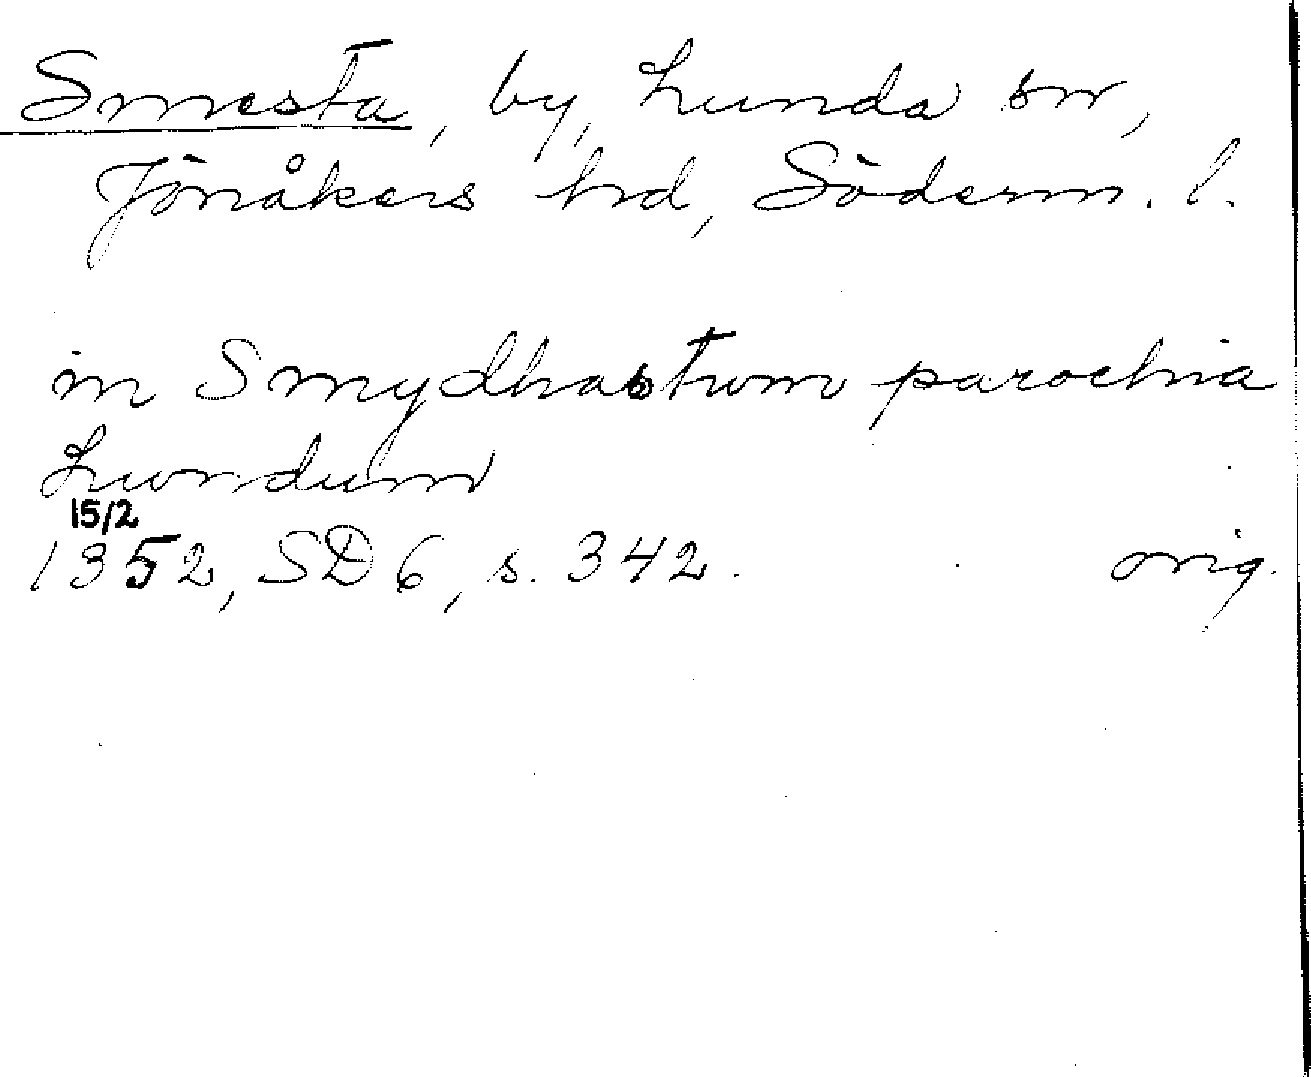 Smesta, by, Lunda sn,
Jönåkers hd, Söderm. l.
in Smydhastum parochia
Lundum
15/2
1352, SD 6, s. 342. orig.